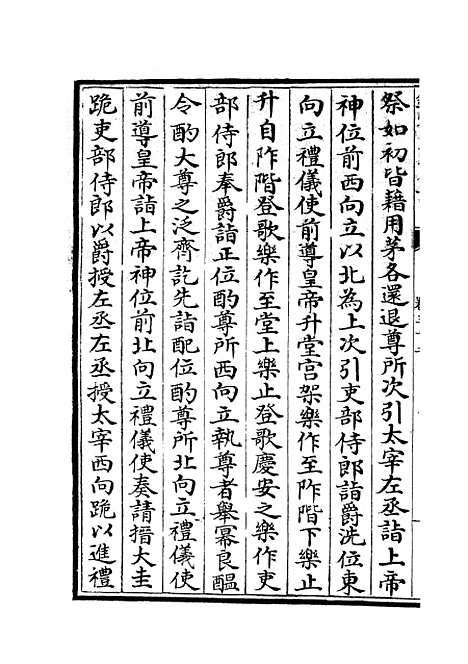 祭如初皆藉用茅各還退尊所次引太宰左丞詣上帝
神位前西向立以北為上次引吏部侍郎詣爵洗位東
向立禮儀使前導皇帝升堂宮架樂作至阼階下樂止
升自阼階登歌樂作至堂上樂止登歌慶安之樂作吏
部侍郎奉爵詣正位酌尊所西向立執尊者舉冪良醞
令酌大尊之泛齊訖先詣配位酌尊所北向立禮儀使
前導皇帝詣上帝神位前北向立禮儀使奏請搢大圭
跪吏部侍郎以爵授左丞左丞授太宰西向跪以進禮